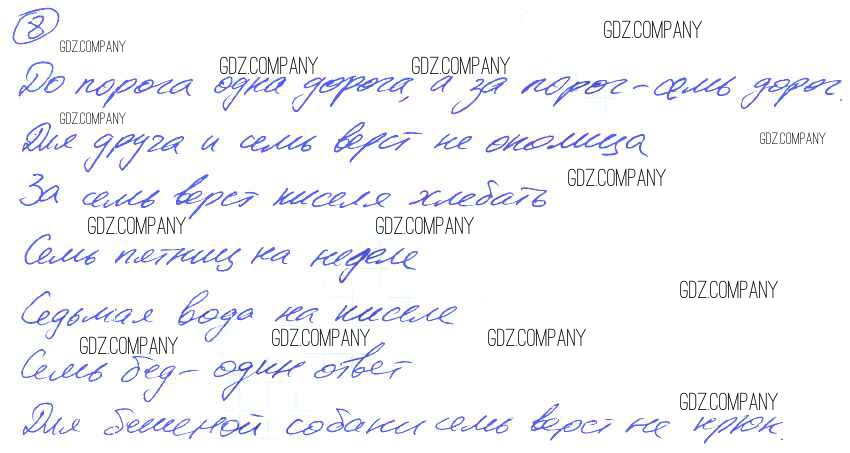 8
GDZ.COMPANY
GDZ.COMPANY
GDZ.COMPANY GDZ.COMPANY
До порога одна дорога, а за порог - семь дорог.
GDZ.COMPANY
GDZ.COMPANY
Для друга и семь верст не околица
GDZ.COMPANY
За семь верст киселя хлебать
GDZ.COMPANY GDZ.COMPANY
Семь пятниц на неделе
GDZ.COMPANY
Седьмая вода на киселе
GDZ.COMPANY GDZ.COMPANY GDZ.COMPANY
Семь бед - один ответ
GDZ.COMPANY
Для бешеной собаки семь верст не крюк.